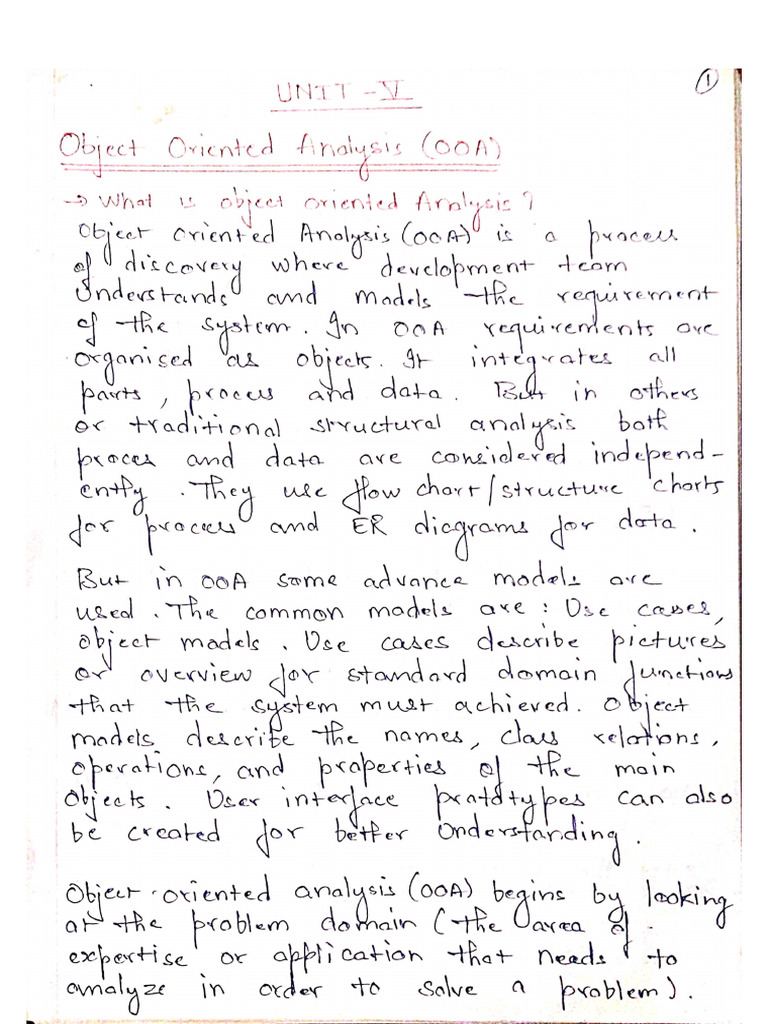 1
UNIT - V
Object Oriented Analysis (OOA)
→ What is object oriented Analysis?
Object oriented Analysis (OOA) is a process
of discovery where development team
Understands and models the requirement
of the system. In OOA requirements are
organised as objects. It integrates all
parts, process and data. But in others
or traditional structural analysis both
proces and data are considered independ-
ently. They use flow chart/structure charts
for process and ER diagrams for data.
But in OOA some advance models are
used. The common models are: Use cases,
object models. Use cases describe pictures
or overview for standard domain functions
that the system must achieved. Object
models describe the names, class relations,
operations, and properties of the main
objects. User interface prototypes can also
be created for better Understanding.
Object-oriented analysis (OOA) begins by looking
at the problem domain (the area of
expertise or application that needs to
analyze in order to solve a problem).